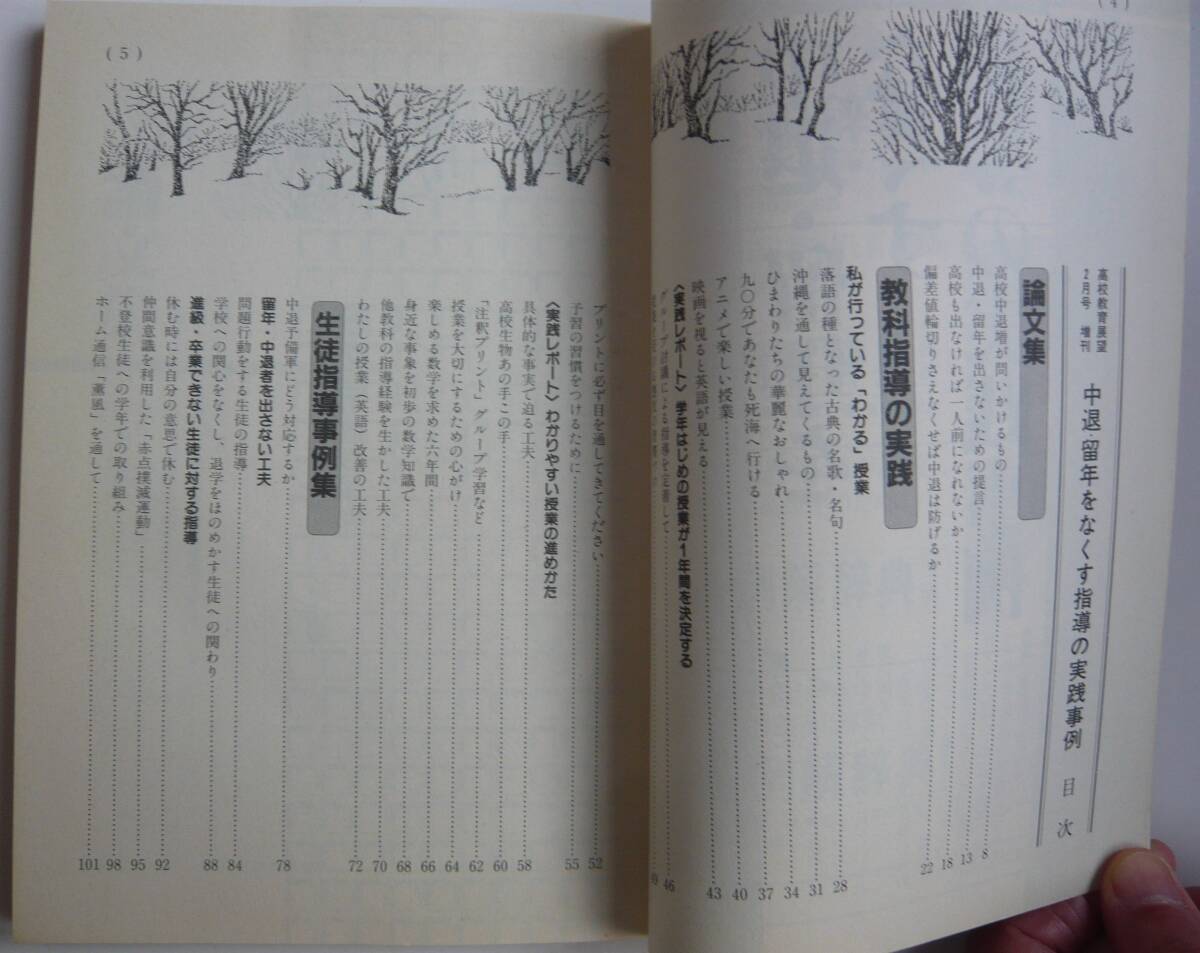 (4)
高校教育展望
2月号 増刊
中退・留年をなくす指導の実践事例 目次
論文集
高校中退増が問いかけるもの……8
中退・留年を出さないための提言……13
高校も出なければ一人前になれないか……18
偏差値輪切りさえなくせば中退は防げるか……22
教科指導の実践
私が行っている「わかる」授業
落語の種となった古典の名歌・名句……28
沖縄を通して見えてくるもの……31
ひまわりたちの華麗なおしゃれ……34
九〇分であなたも死海へ行ける……37
アニメで楽しい授業……40
映画を視ると英語が見える……43
〈実践レポート〉学年はじめの授業が1年間を決定する
グループ討議による指導を定着して……46
(5)
プリントに必ず目を通してきてください……52
予習の習慣をつけるために……55
〈実践レポート〉わかりやすい授業の進めかた
具体的な事実で迫る工夫……58
高校生物あの手この手……60
「注釈プリント」グループ学習など……62
授業を大切にするための心がけ……64
楽しめる数学を求めた六年間……66
身近な事象を初歩の数学知識で……68
他教科の指導経験を生かした工夫……70
わたしの授業（英語）改善の工夫……72
生徒指導事例集
中退予備軍にどう対応するか……78
留年・中退者を出さない工夫
問題行動をする生徒の指導……84
学校への関心をなくし、退学をほのめかす生徒への関わり……88
進級・卒業できない生徒に対する指導
休む時には自分の意思で休む……92
仲間意識を利用した「赤点撲滅運動」……95
不登校生徒への学年での取り組み……98
ホーム通信「薫風」を通して……101